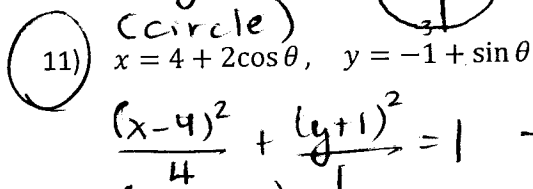 (circle)
3
11) x = 4 + 2cos θ, y = −1 + sin θ
(x-4)²/4 + (y+1)²/1 = 1 -